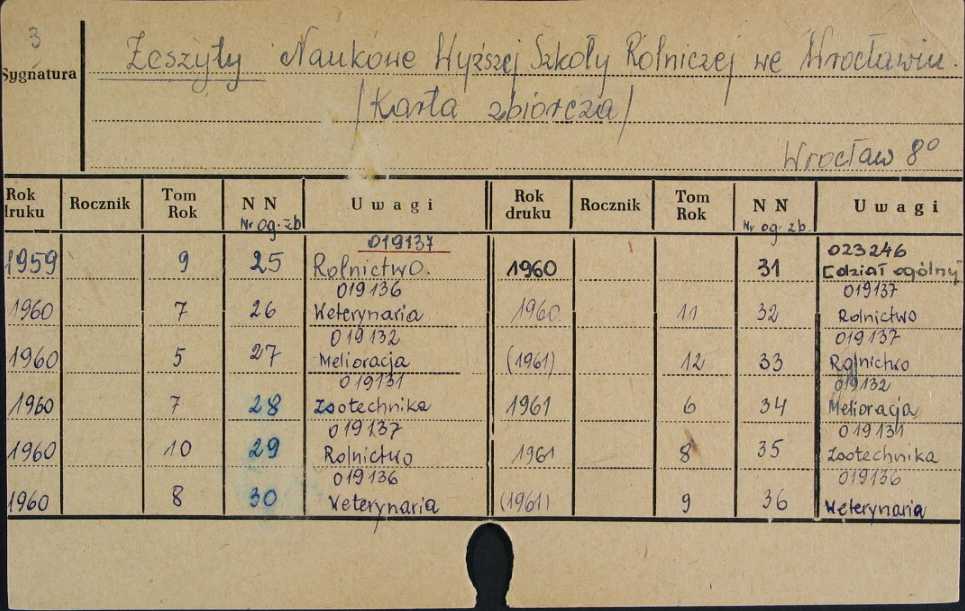 3
Sygnatura
Zeszyty Naukowe Wyższej Szkoły Rolniczej we Wrocławiu.
/Karta zbiorcza/
Wrocław 8°
Rok druku Rocznik Tom Rok NN Nr og. zb. Uwagi Rok druku Rocznik Tom Rok NN Nr og. zb. Uwagi
019137 023246
1959 9 25 Rolnictwo. 1960 31 [dział ogólny]
019136 019137
1960 7 26 Weterynaria 1960 11 32 Rolnictwo
019132 019137
1960 5 27 Melioracja (1961) 12 33 Rolnictwo
019131 019132
1960 7 28 Zootechnika 1961 6 34 Melioracja
019137 019131
1960 10 29 Rolnictwo 1961 8 35 Zootechnika
019136 019136
1960 8 30 Weterynaria (1961) 9 36 Weterynaria